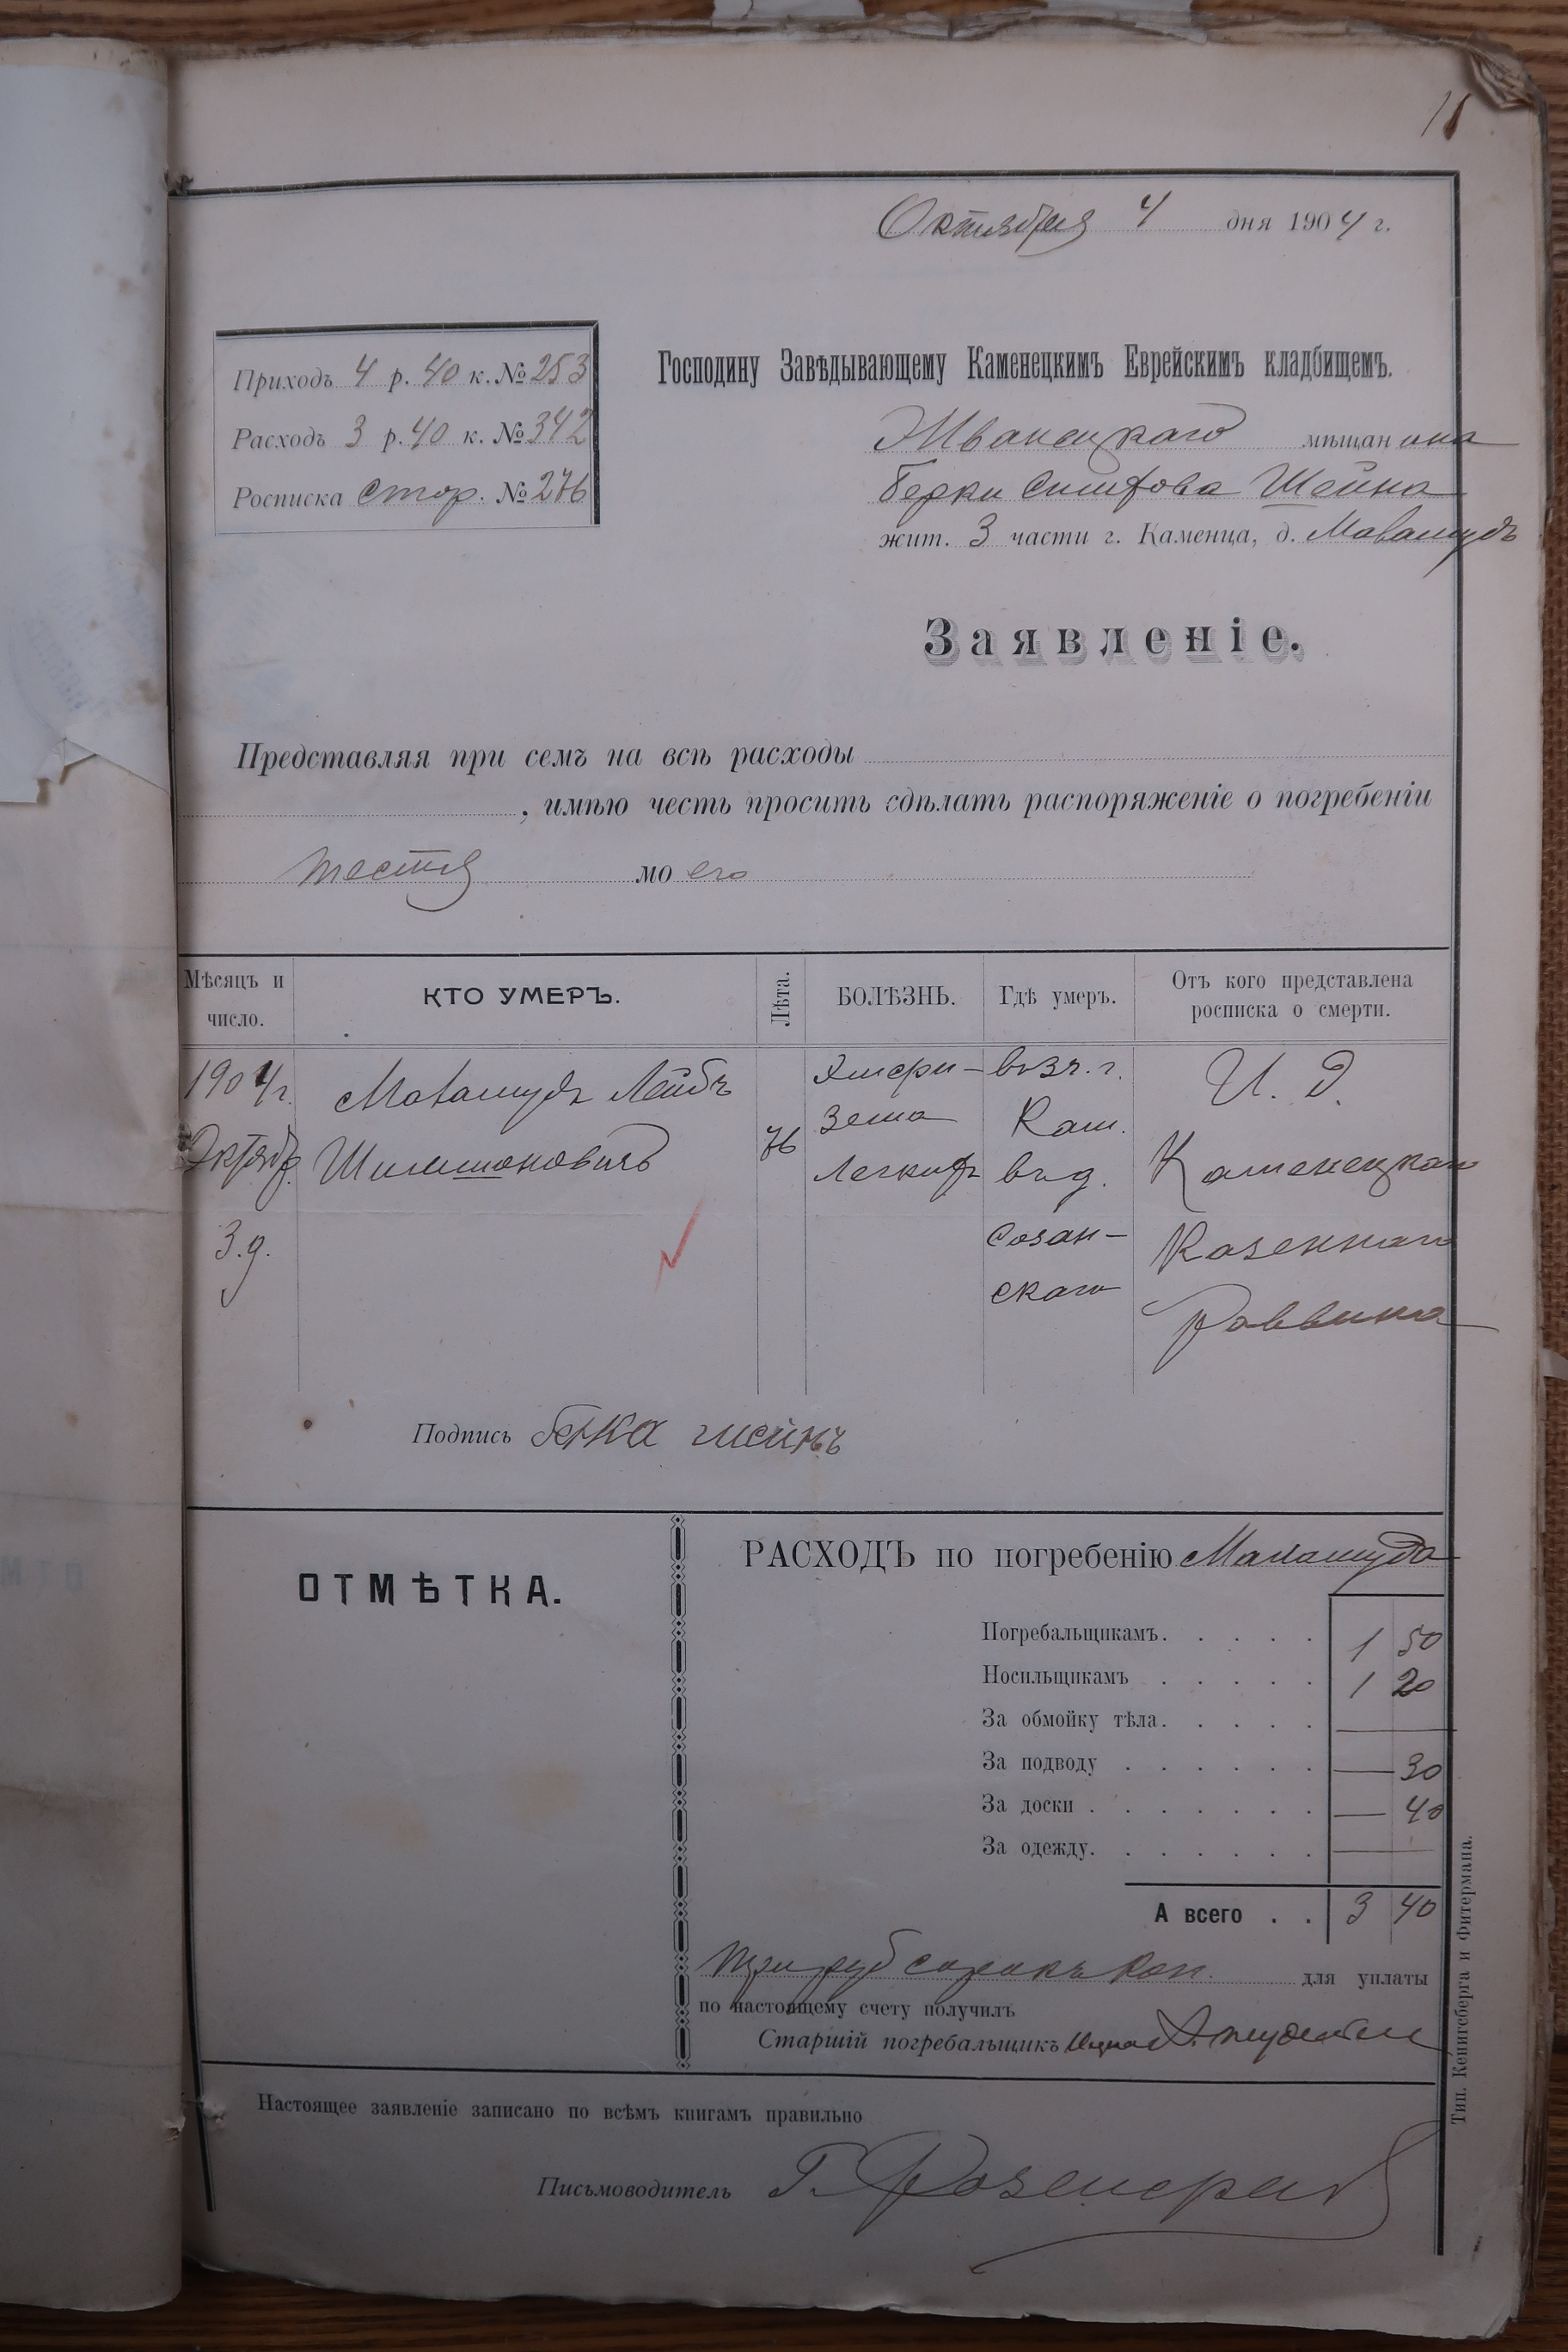 11
Октября 4 дня 1904 г.
Приходъ 4 р. 40 к. № 253
Расходъ 3 р. 40 к. № 342
Росписка стор. № 276
Господину Завѣдывающему Каменецкимъ Еврейскимъ кладбищемъ.
Жванецкаго мѣщанина
Берки Шейна
жит. 3 части г. Каменца, д.
Заявленіе.
Представляя при семъ на всѣ расходы
, имѣю честь просить сдѣлать распоряженіе о погребеніи
тестя моего
Мѣсяцъ и число. КТО УМЕРЪ. Лѣта. БОЛѢЗНЬ. Гдѣ умеръ. Отъ кого представлена росписка о смерти.
1904 г. Лейбъ Эмфи- возч. г. И. Д.
Октябр. Шимшоновичъ 76 зема Кам. Каменецкаго
3 д. Легкихъ вѣд. Казеннаго
Созан-
скаго Раввина
Подпись Берка шейнъ
ОТМѢТКА.
РАСХОДЪ по погребенію
Погребальщикамъ. 1 50
Носильщикамъ 1 20
За обмойку тѣла. —
За подводу — 30
За доски — 40
За одежду. —
А всего 3 40
Три руб сорокъ коп. для уплаты
по настоящему счету получилъ
Старшій погребальщикъ
Настоящее заявленіе записано по всѣмъ книгамъ правильно
Письмоводитель Г.
Тип. Кенигсберга и Фитермана.